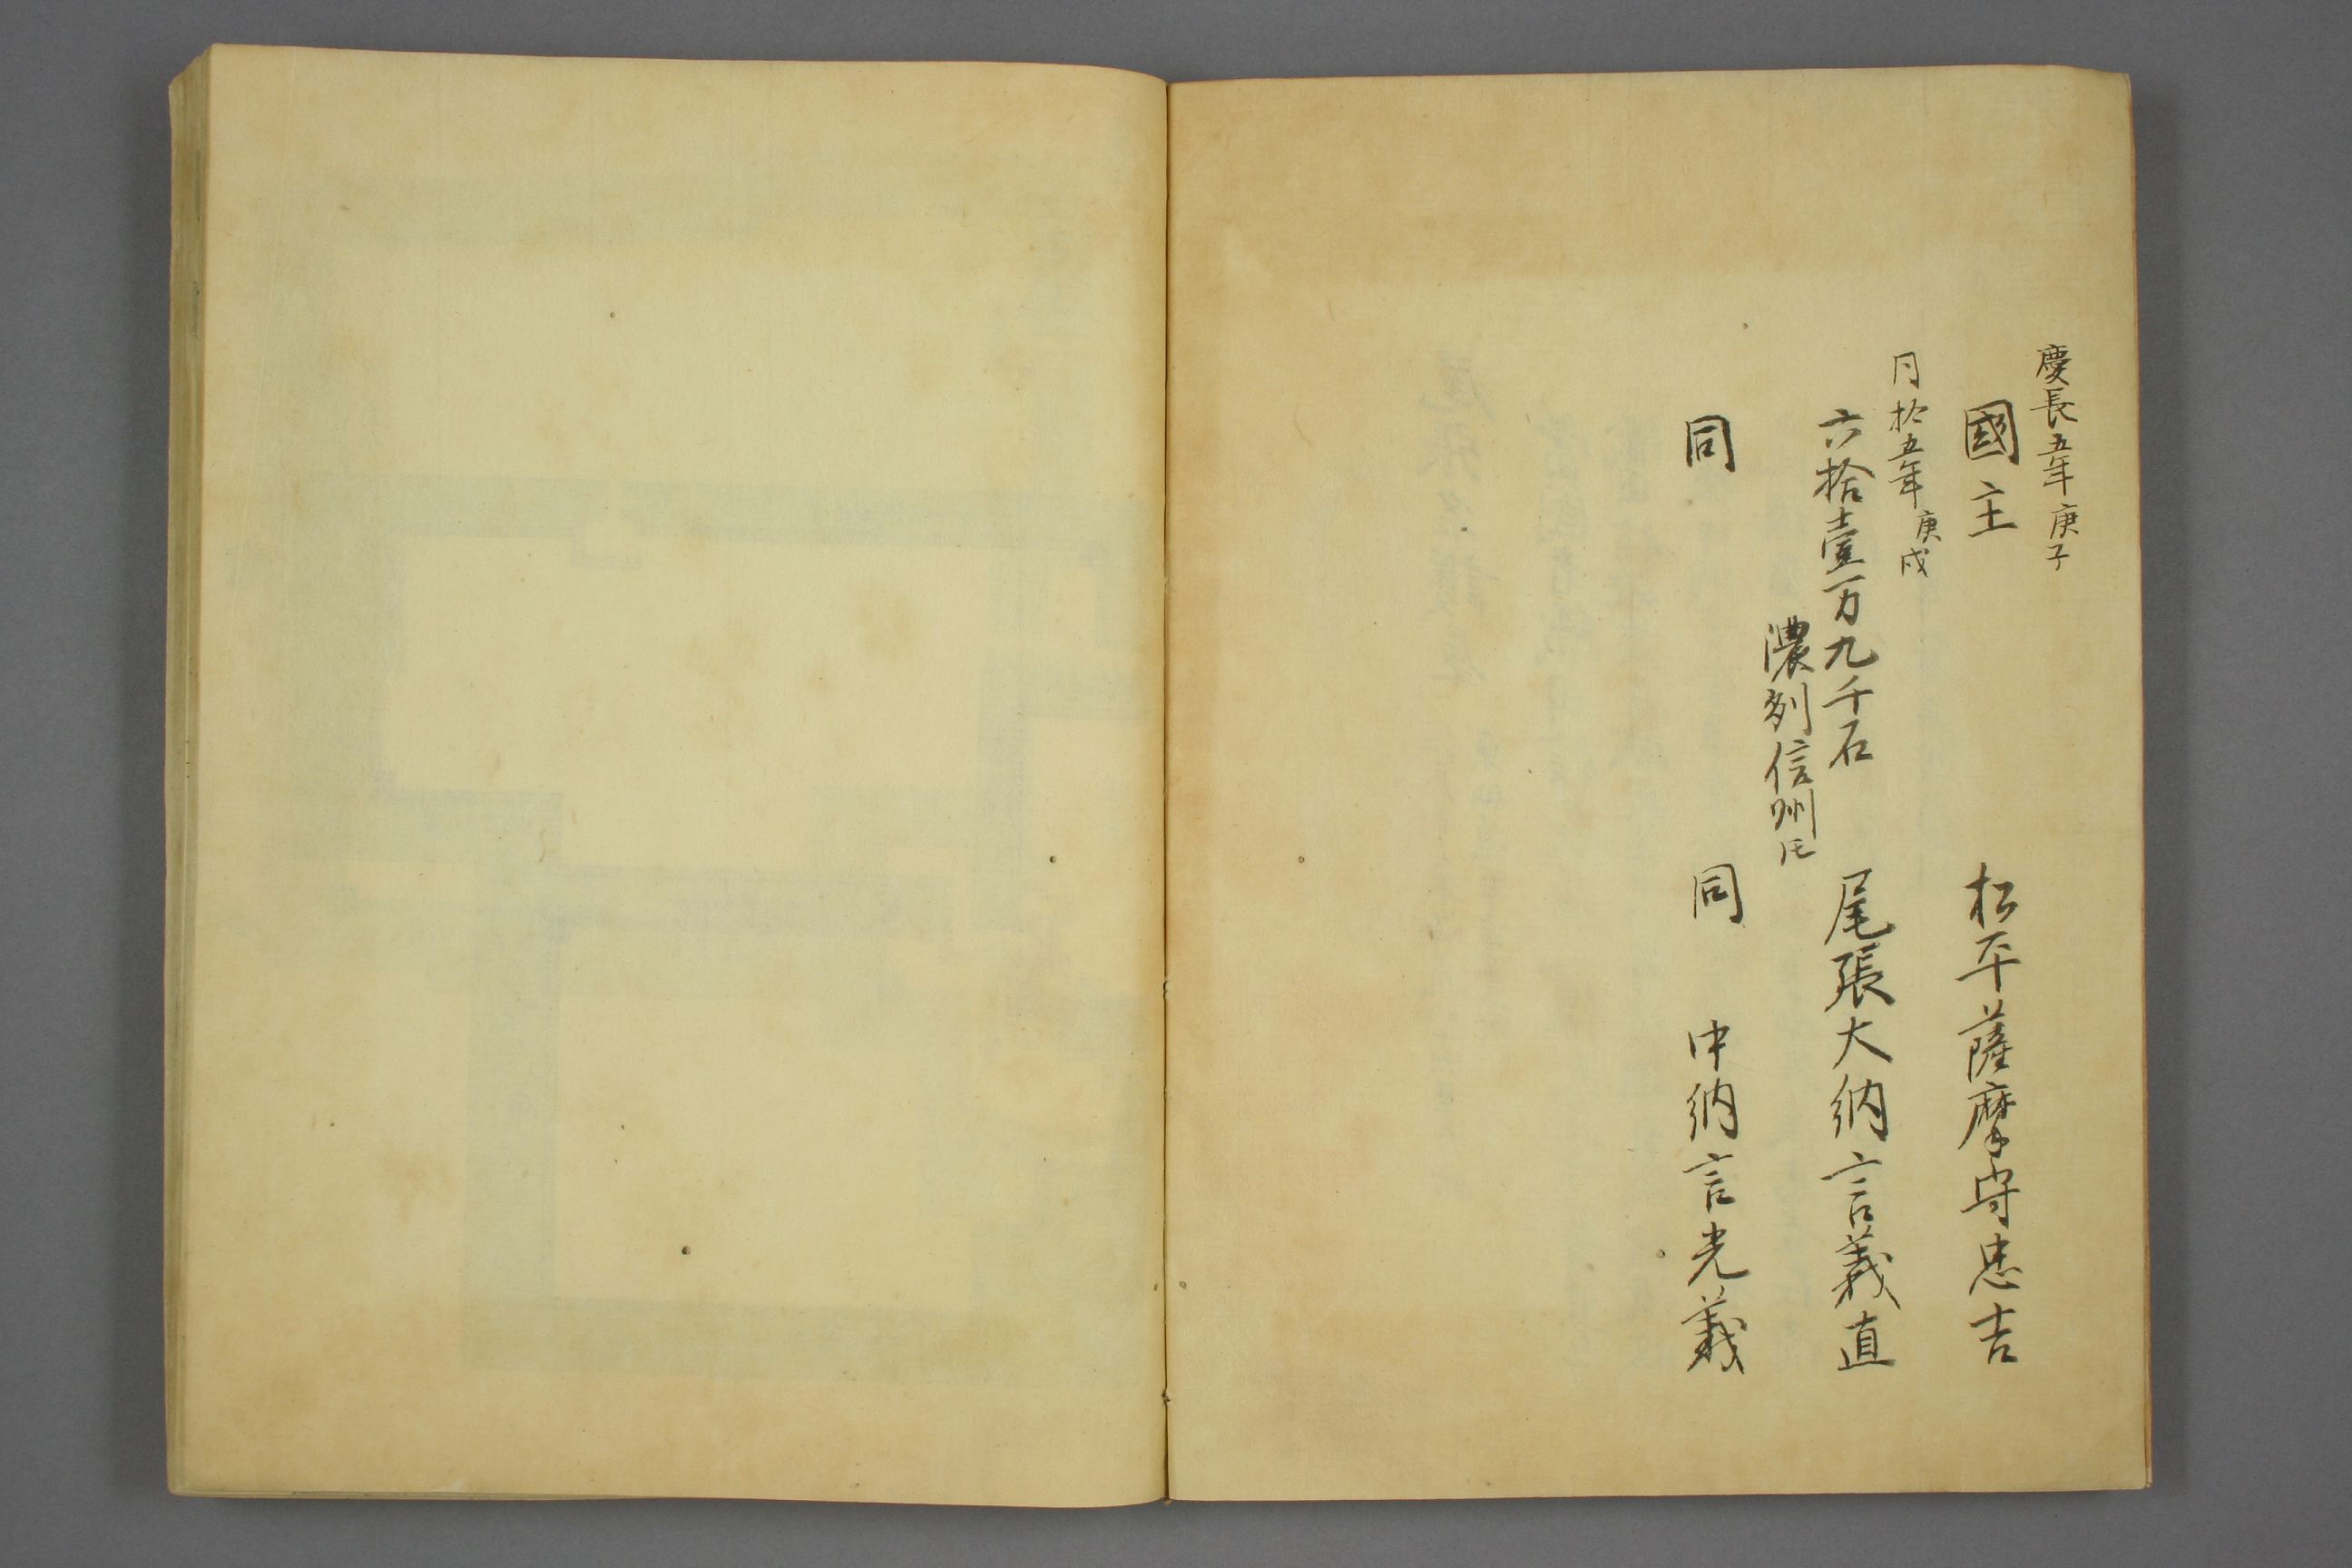 慶長五年庚子
國主 松平薩摩守忠吉
同拾五年庚戌
六拾壹万九千石 尾張大納言義直
濃州信州𪜈
同 同 中納言光義